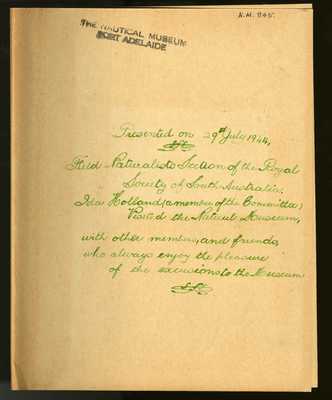 N.M. 845.
THE NAUTICAL MUSEUM
PORT ADELAIDE
Presented on 29th July 1944,
Field Naturalists Section of the Royal
Society of South Australia.
Ida Holland (a member of the Committee)
Visited the Museum,
with other members, and friends,
who always enjoy the pleasure
of the excursions to the Museum